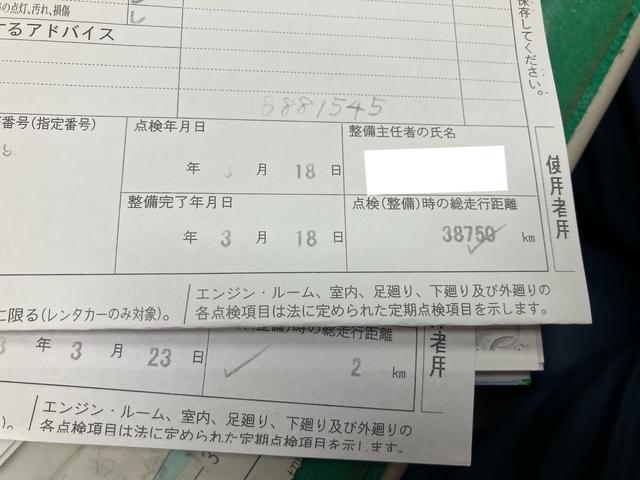 の点灯、汚れ、損傷
するアドバイス
保存してください。
8881545
番号(指定番号)
点検年月日
整備主任者の氏名
年 3 月 18 日
整備完了年月日
点検(整備)時の総走行距離
年 3 月 18 日
38750 km
使用者用
に限る(レンタカーのみ対象)。
エンジン・ルーム、室内、足廻り、下廻り及び外廻りの
各点検項目は法に定められた定期点検項目を示します。
(整備)時の総走行距離
3 年 3 月 23 日
2 km
者用
エンジン・ルーム、室内、足廻り、下廻り及び外廻りの
各点検項目は法に定められた定期点検項目を示します。